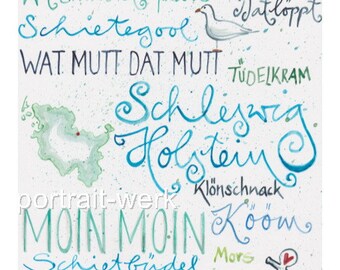 dat löppt
Schietegool
WAT MUTT DAT MUTT
TÜDELKRAM
Schleswig
Holstein
Klönschnack
portrait-werk
MOIN MOIN
Kööm
Mors
Schietbüdel